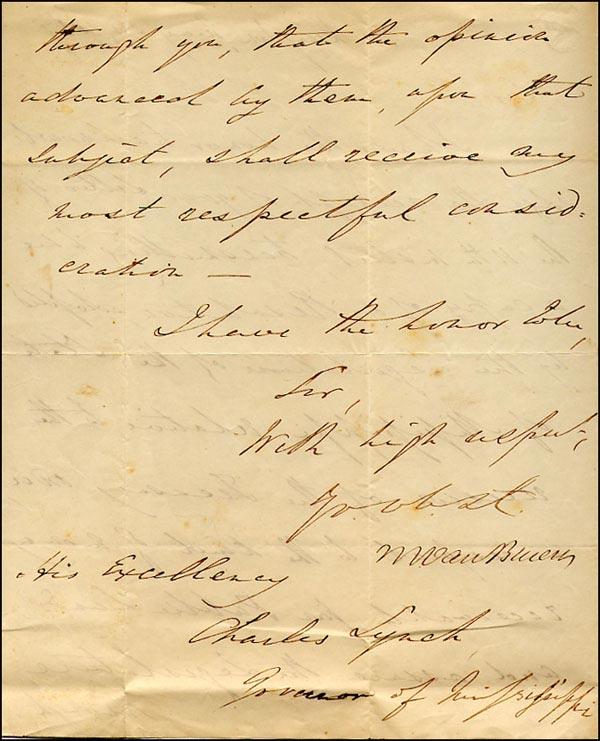 through you, that the opinion
advanced by them, upon that
subject, shall receive my
most respectful consid=
eration —
I have the honor to be,
Sir,
With high respect,
Yr. ob. st.
M Van Buren
His Excellency
Charles Lynch,
Governor of Mississippi